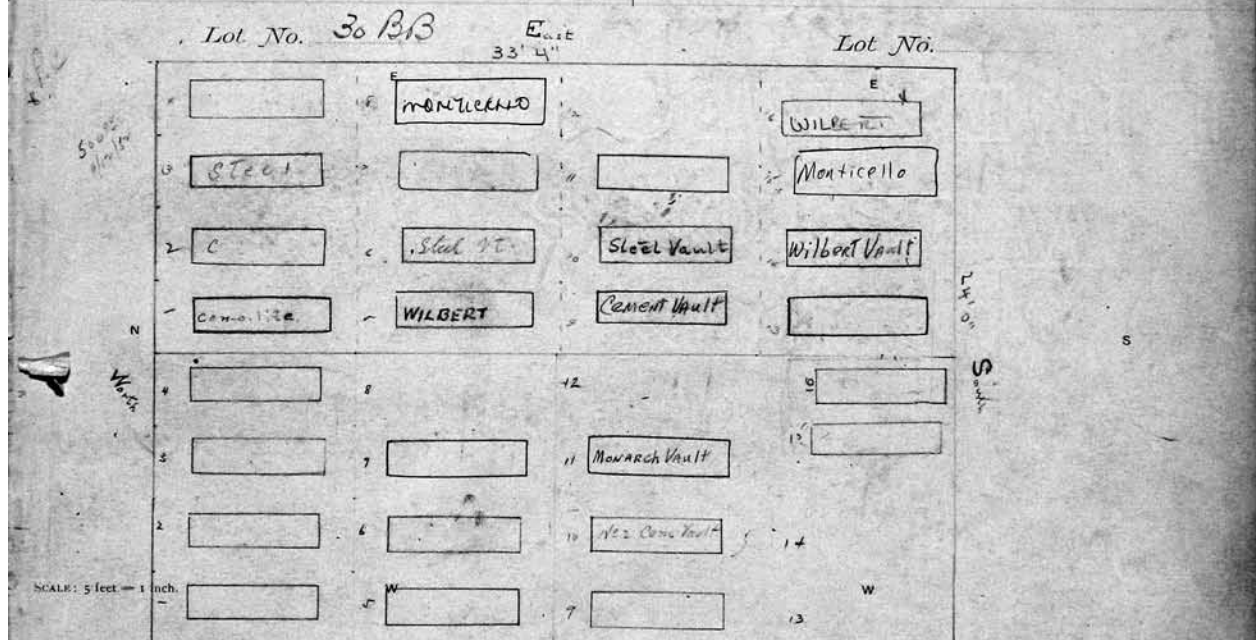 Lot No. 30 BB East Lot No.
33' 4"
E
MONTICELLO
E
WILBERT
3 Steel
Monticello
2 C
Steel Vt.
Steel Vault
Wilbert Vault
WILBERT
Cement Vault
24' 0"
N
S
North
South
4
8
12
16
3
7
11 Monarch Vault
15
2
6
10 No 2 Com Vault
14
SCALE: 5 feet = 1 inch.
W
W
5
9
13